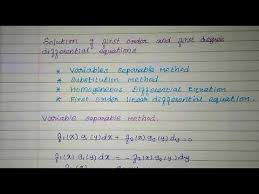 Solution of first order and first degree
differential equations
* Variables Separable method
* Substitution method
* Homogeneous Differential Equation
* First order linear differential equation.
Variable separable method.
f₁(x) g₁(y) dx + f₂(x) g₂(y) dy = 0
f₁(x) g₁(y) dx = - f₂(x) g₂(y) dy